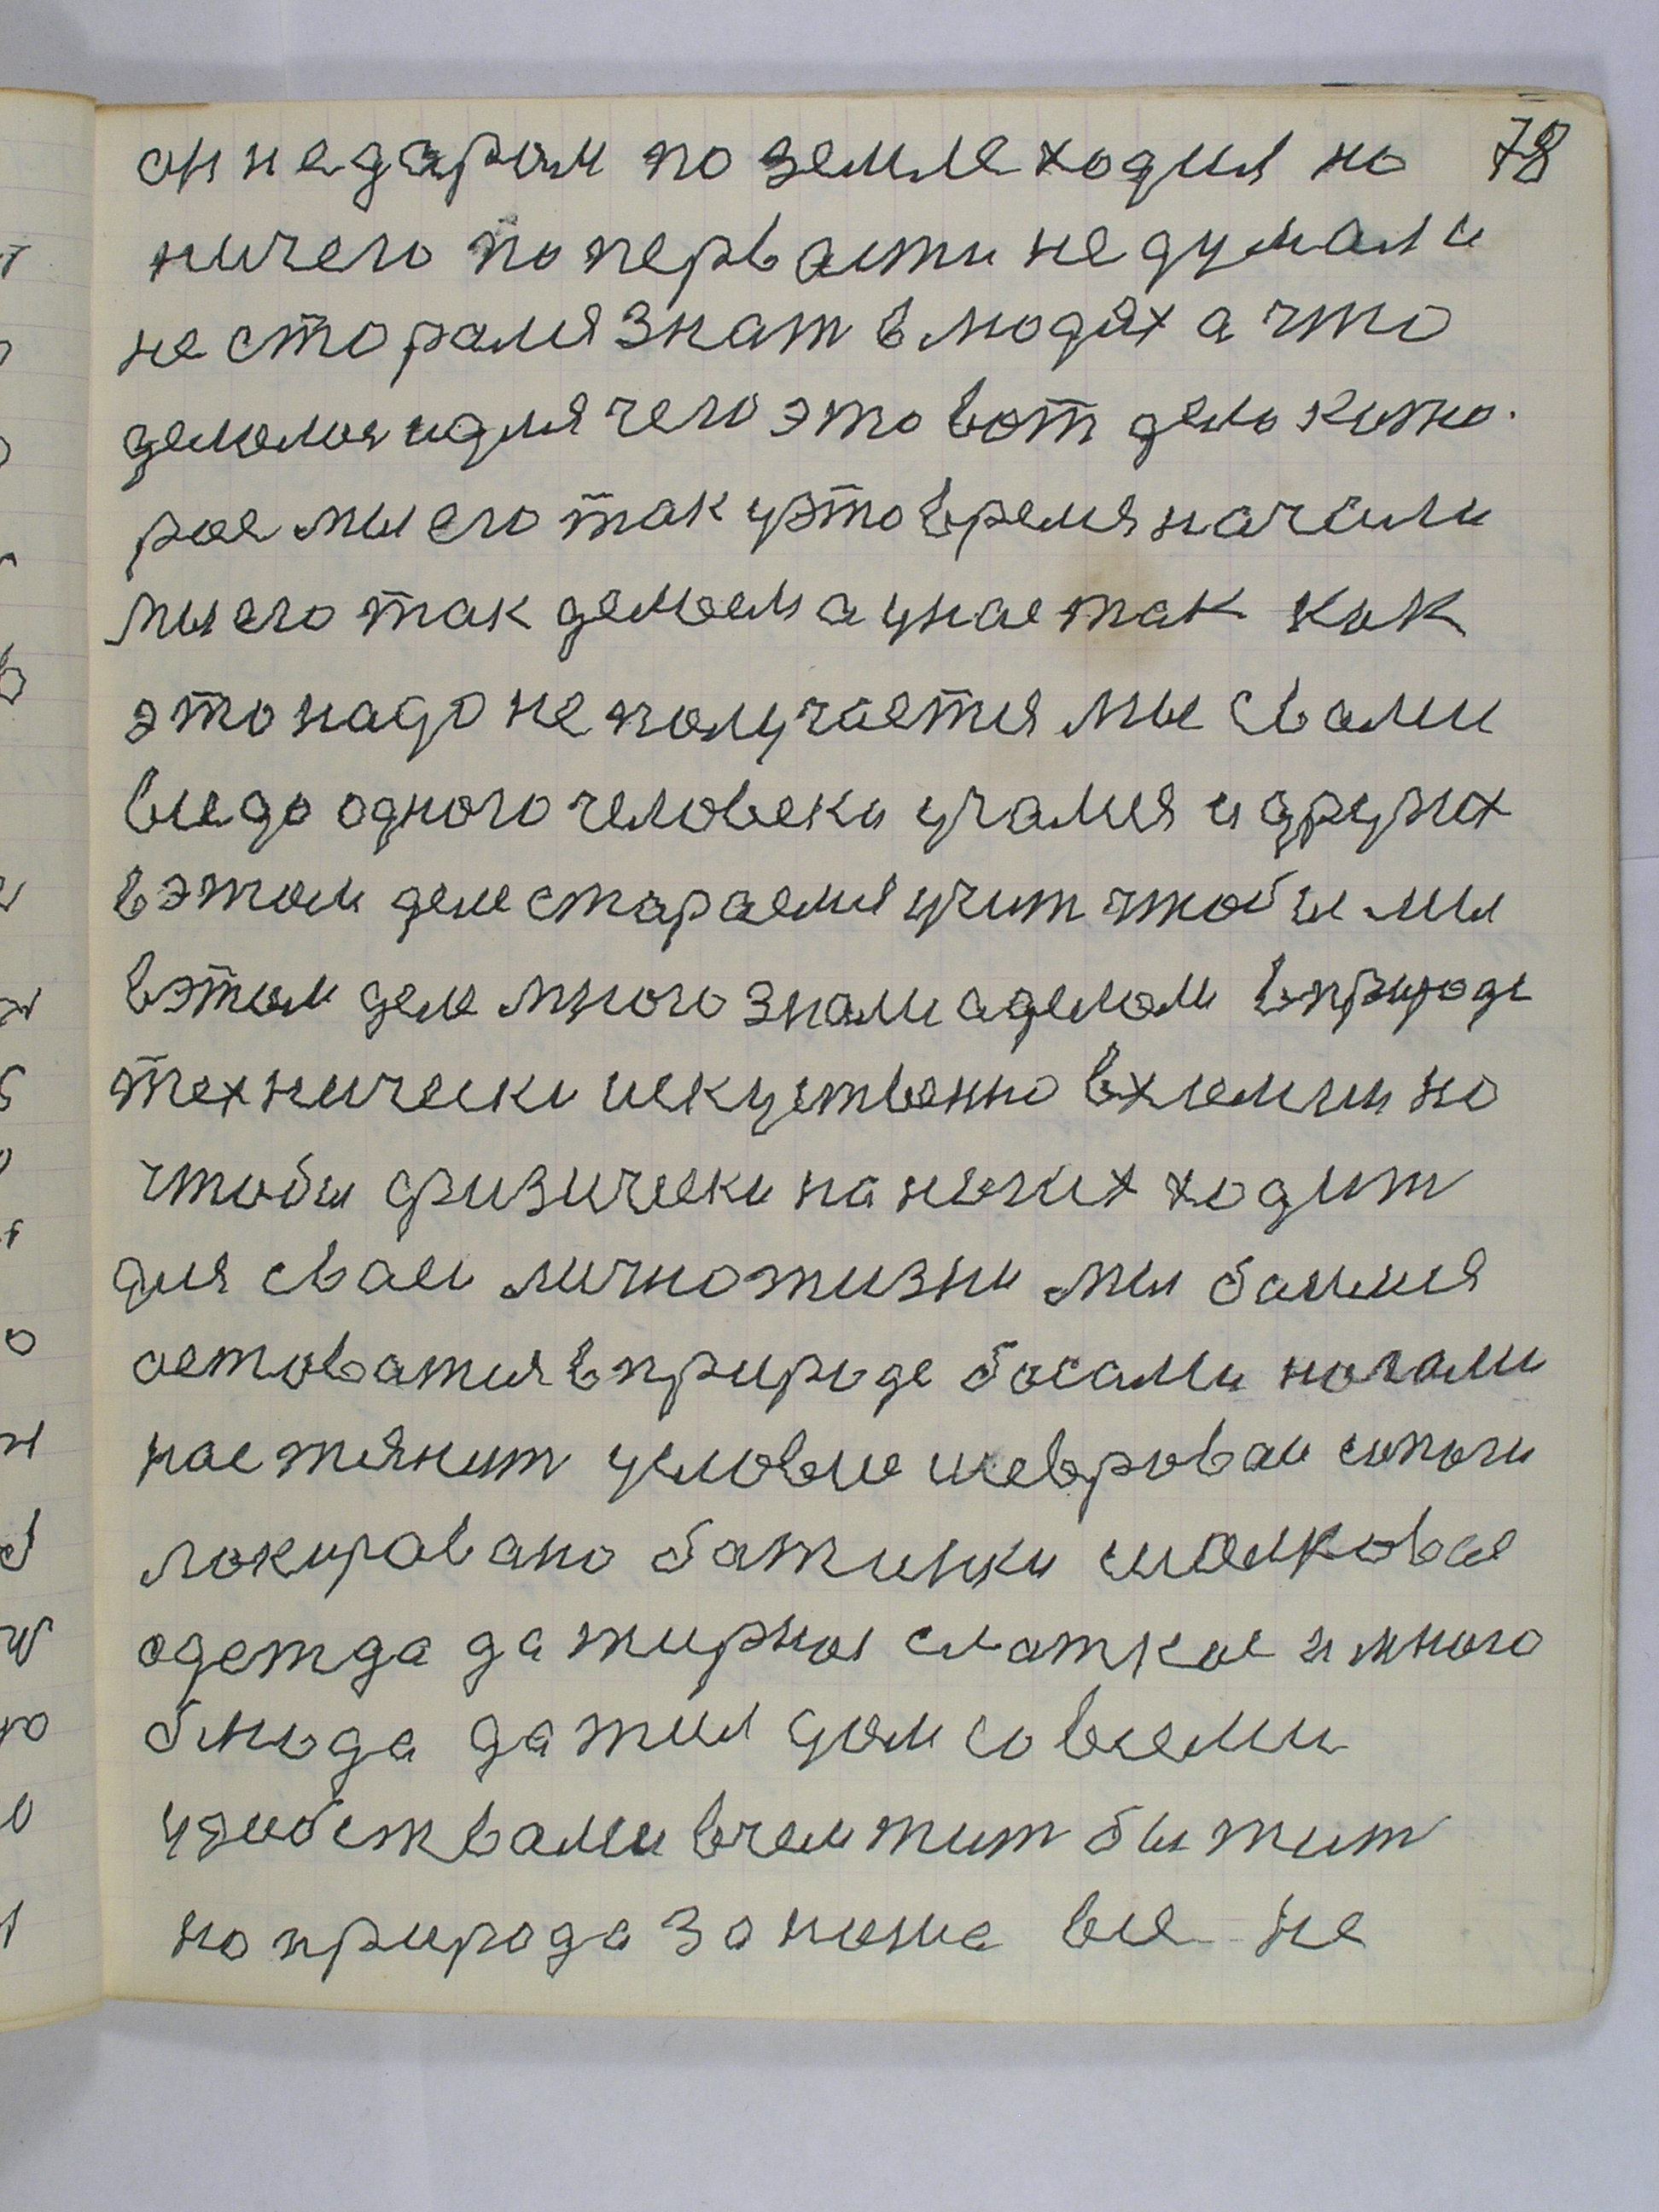 он недаром по земле ходил но 78
ничего по первасти не думал и
не сторался знат в людях а что
делолоя и для чего это вот дело кото-
рое мы его так у это время начали
мы его так делоем а у нас так как
это надо не получается мы с вами
все до одного человека учался и других
в этом деле стараемся учит чтобы мы
в этом деле много знали а делом в природе
технически искуственно в химии но
чтобы физически на ногих ходит
для сваей лично жизни мы баимся
остоватся в природе босами ногами
нас тянит условие шевроваи сапоги
локировано батинки шолковые
одетда да жирные слаткое и много
блюда да жил дом со всеми
удобствами в чем жит бы жит
но природа за наша все не